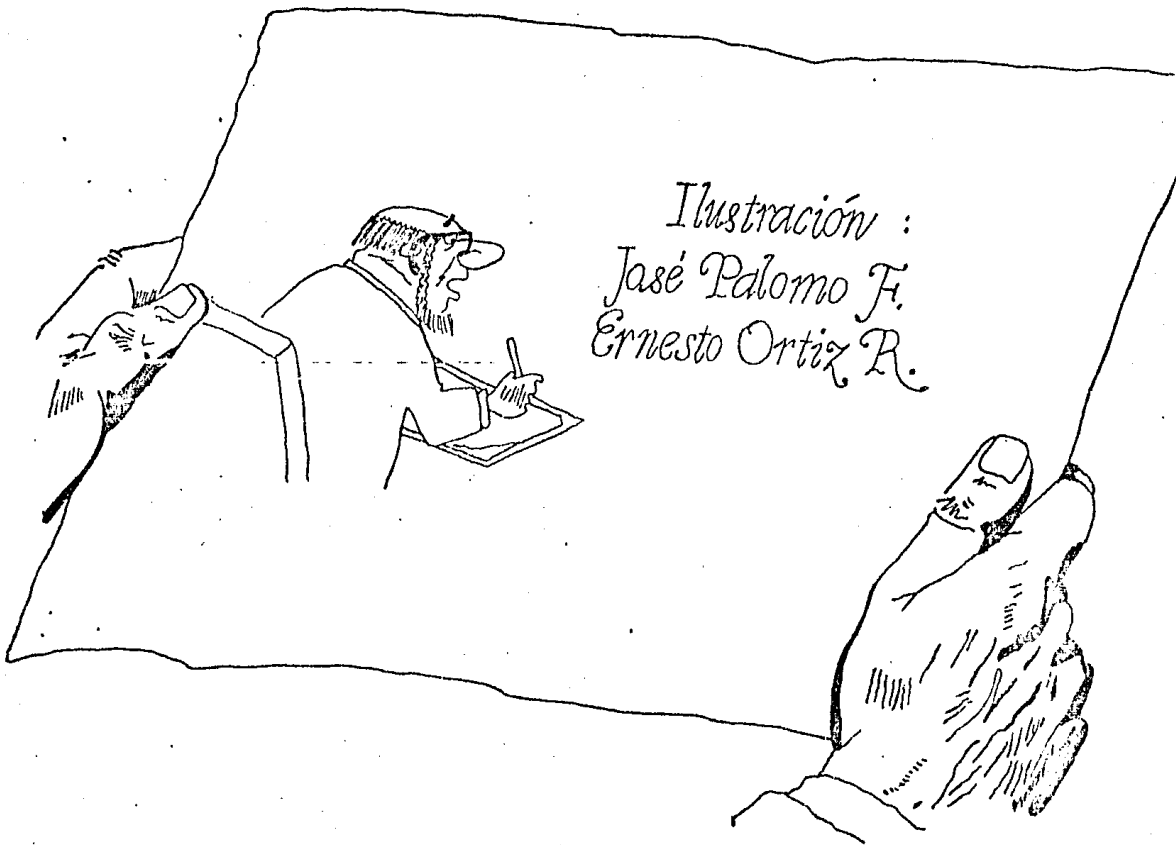 Ilustración :
José Palomo F.
Ernesto Ortiz R.